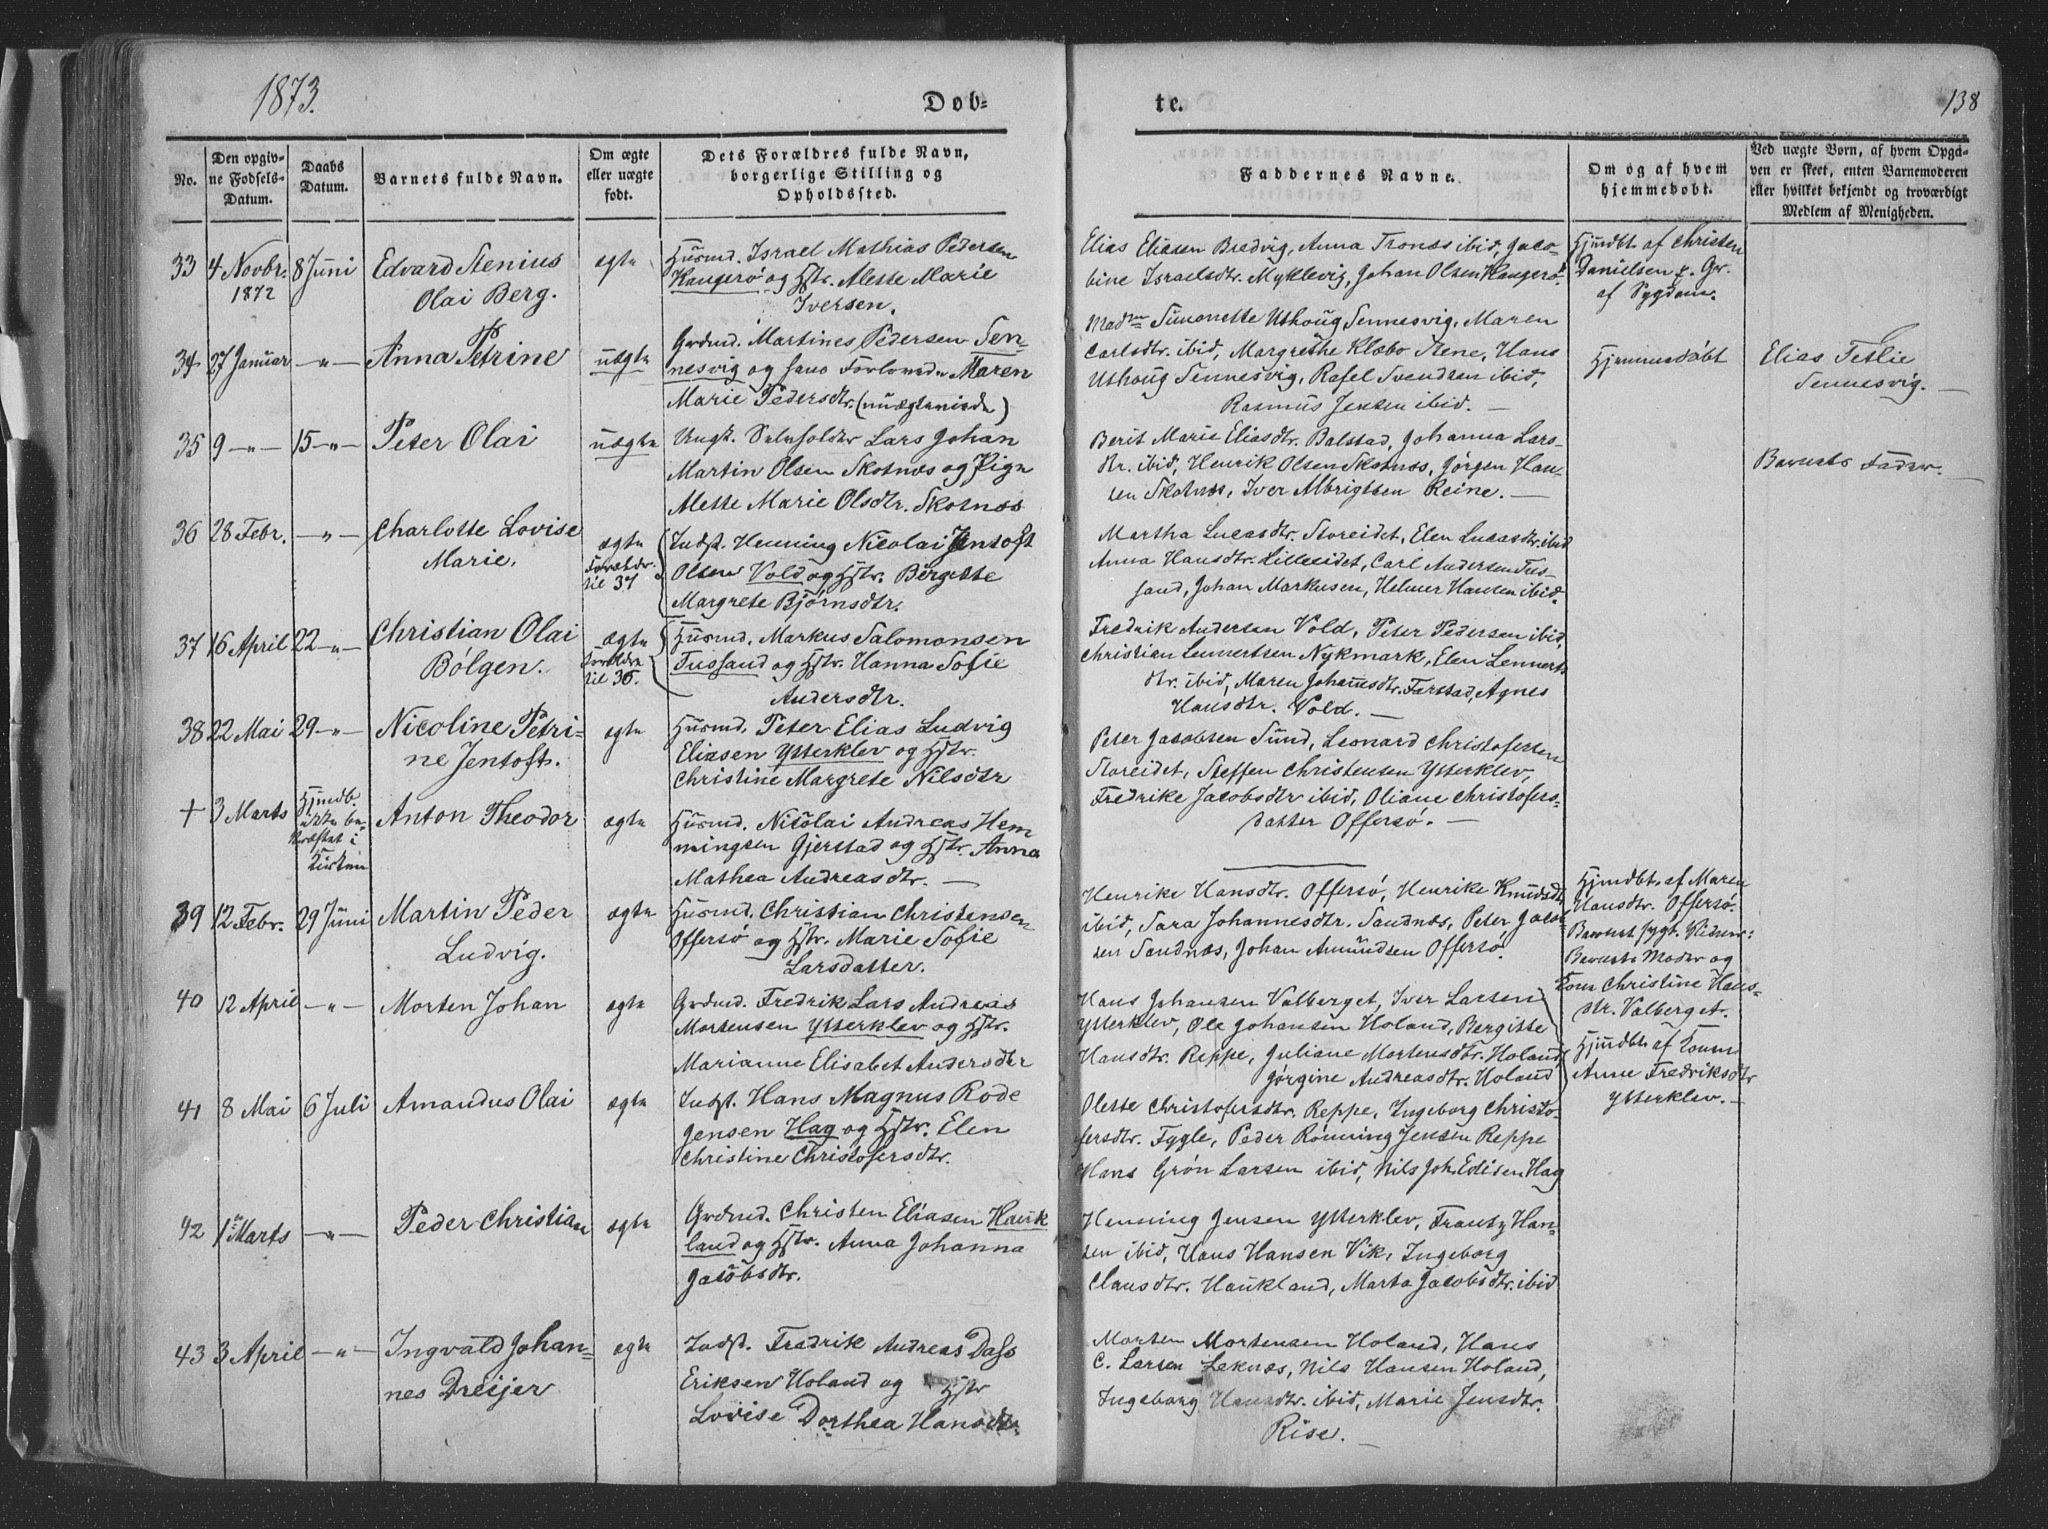 1873.
Døb-
te.
138
No.
Den opgiv-
ne Fødsels-
Datum.
Daabs
Datum.
Barnets fulde Navn.
Om ægte
eller uægte
født.
Dets Forældres fulde Navn,
borgerlige Stilling og
Opholdssted.
Faddernes Navne.
Om og af hvem
hjemmedøbt.
Ved uægte Børn, af hvem Opgi-
ven er skeet, enten Barnemoderen
eller hvilket bekjendt og troværdigt
Medlem af Menigheden.
33
4 Novbr.
1872
8 Juni
Edvard Stenius
Olai Berg.
ægte
Husmd. Israel Mathias Pedersen
Haugerø og Hstr. Mette Marie
Iversen.
Elias Eliasen Bredvig, Anna Tronss ibid, Jaco-
bine Israelsdtr. Myklevig, Johan Olsen Haugerø.
Hjmdbt. af Christen
Danielsen
af Sygdom.
34
27 Januar
-"-
Anna Petrine
uægte
Grdmd. Martines Pedersen Sen-
nesvig og Maren
Marie Pedersdtr.
Madm Simonette Uthoug Sennesvig, Maren
Carlsdtr. ibid, Margrethe Klæbo Stene, Hans
Uthoug Sennesvig, Rafel Svendsen ibid,
Rasmus Jensen ibid. -
Hjemmedøbt
Elias Teslie
Sennesvig. -
35
9 -"-
15 -"-
Peter Olai
uægte
Ungk. Lars Johan
Martin Olsen Skotnæs og Pige
Mette Marie Olsdtr. Skotnæs
Berit Marie Eliasdtr. Balstad, Johanna Lars-
dtr. ibid, Henrik Olsen Skotnæs, Jørgen Han-
sen Skotnæs, Iver Albrigtsen Reine. -
Barnets Fader. -
36
28 Febr.
-"-
Charlotte Lovise
Marie.
ægte
Forældre
til 37
Indst. Henning Nicolai Jentoft
Olsen Vold og Hstr. Bergette
Margrete Bjørnsdtr.
Martha Lucasdtr. Storeidet, Elen Lucasdtr. ibid
Anna Hansdtr. Lilleeidet, Carl Andersen Fus-
sand, Johan Markusen, Helmer Hansen ibid.
37
16 April
22 -"-
Christian Olai
Bølgen.
ægte
Forældre
til 36.
Husmd. Markus Salomonsen
Fussand og Hstr. Hanna Sofie
Andersdtr.
Fredrik Andersen Vold, Peter Pedersen ibid,
Christian Lennertsen Nykmark, Elen Lennerts
dtr. ibid, Maren Johannesdtr. Farstad, Agnes
Hansdtr. Vold. -
38
22 Mai
29 -"-
Nicoline Petri-
ne Jentoft.
ægte
Husmd. Peter Elias Ludvig
Eliasen Ytterklev og Hstr.
Christine Margrete Nilsdtr
Peter Jacobsen Sund, Leonard Christofersen
Storeidet, Steffen Christensen Ytterklev,
Fredrike Jacobsdtr ibid, Oliane Christofers-
datter Offersø. -
+
3 Marts
Hjmdb.
ikke be-
kræftet i
Kirken
Anton Theodor
ægte
Husmd. Nicolai Andreas Hem
mingsen Gjerstad og Hstr. Anna
Mathea Andreasdtr. -
39
12 Febr.
29 Juni
Martin Peder
Ludvig.
ægte
Husmd. Christian Christensen
Offersø og Hstr. Marie Sofie
Larsdatter.
Henrike Hansdtr. Offersø, Henrike Knudsdtr
ibid, Sara Johannesdtr. Sandnæs, Peter Jacob
sen Sandnæs, Johan Amundsen Offersø.
Hjmdbt. af Maren
Hansdtr. Offersø.
Barnet sygt.
Barnets Moder og
Kone Christine Hans-
dtr. Valberget.
40
12 April
-"-
Morten Johan
ægte
Grdmd. Fredrik Lars Andreas
Mortensen Ytterklev og Hstr.
Marianne Elisabet Andersdtr
Hans Johansen Valberget, Iver Larsen
Ytterklev, Ole Johansen Holand, Bergitte
Hansdtr. Reppe, Juliane Mortensdtr. Holand
Jørgine Andreasdtr. Holand
Hjmdbt. af Konen
Anne Fredriksdtr
Ytterklev. -
41
8 Mai
6 Juli
Amandus Olai
ægte
Indst. Hans Magnus Rode
Jensen Hag og Hstr. Elen
Christine Christofersdtr.
Olette Christofersdtr. Reppe, Ingeborg Christo-
fersdtr. Fygle, Peder Rønning Jensen Reppe
Hans Grøn Larsen ibid, Nils Joh. Edisen Hag
42
1ste Marts
-"-
Peder Christian
ægte
Grdmd. Christen Eliasen Hauk
land og Hstr. Anna Johanna
Jacobsdtr.
Henning Jensen Ytterklev, Frantz Han-
sen ibid, Hans Hansen Vik, Ingeborg
Clausdtr. Haukland, Marta Jacobsdtr. ibid
43
3 April
-"-
Ingvald Johan-
nes Dreijer
ægte
Indst. Fredrik Andreas Dass
Eriksen Holand og Hstr
Lovise Dorthea Hansdtr.
Morten Mortensen Holand, Hans
C. Larsen Leknæs, Nils Hansen Holand,
Ingeborg Hansdtr. ibid, Marie Jensdtr.
Rise. -